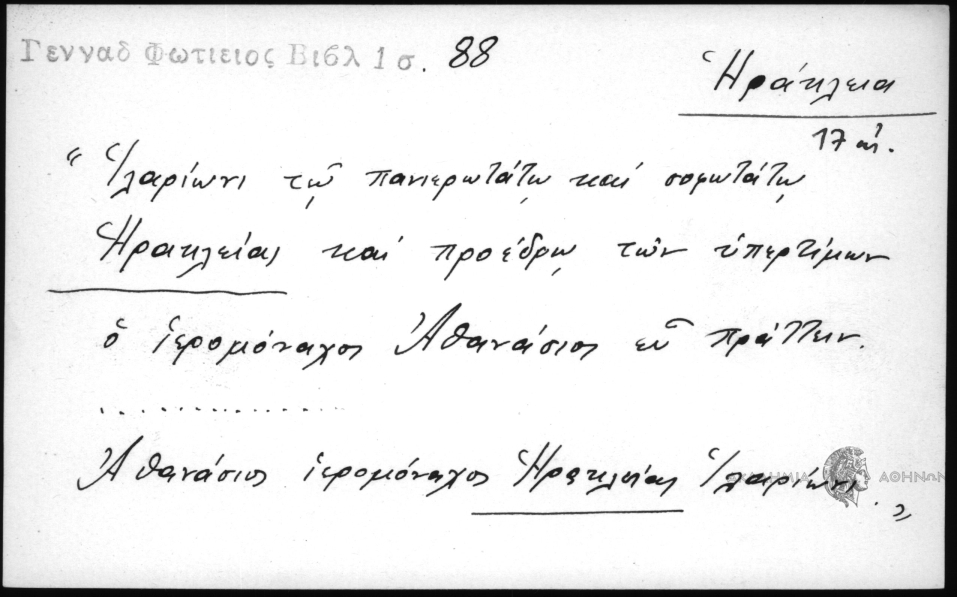 Γενναδ Φωτιειος Βιβλ 1 σ. 88
Ἡράκλεια
17 αἰ.
"Ἱλαρίωνι τῷ πανιερωτάτῳ καί σοφωτάτῳ
Ἡρακλείας καί προέδρῳ τῶν ὑπερτίμων
ὁ ἱερομόναχος Ἀθανάσιος εὖ πράττειν.
....................
Ἀθανάσιος ἱερομόναχος Ἡρακλείας Ἱλαρίωνι."
ΑΘΗΝΩΝ